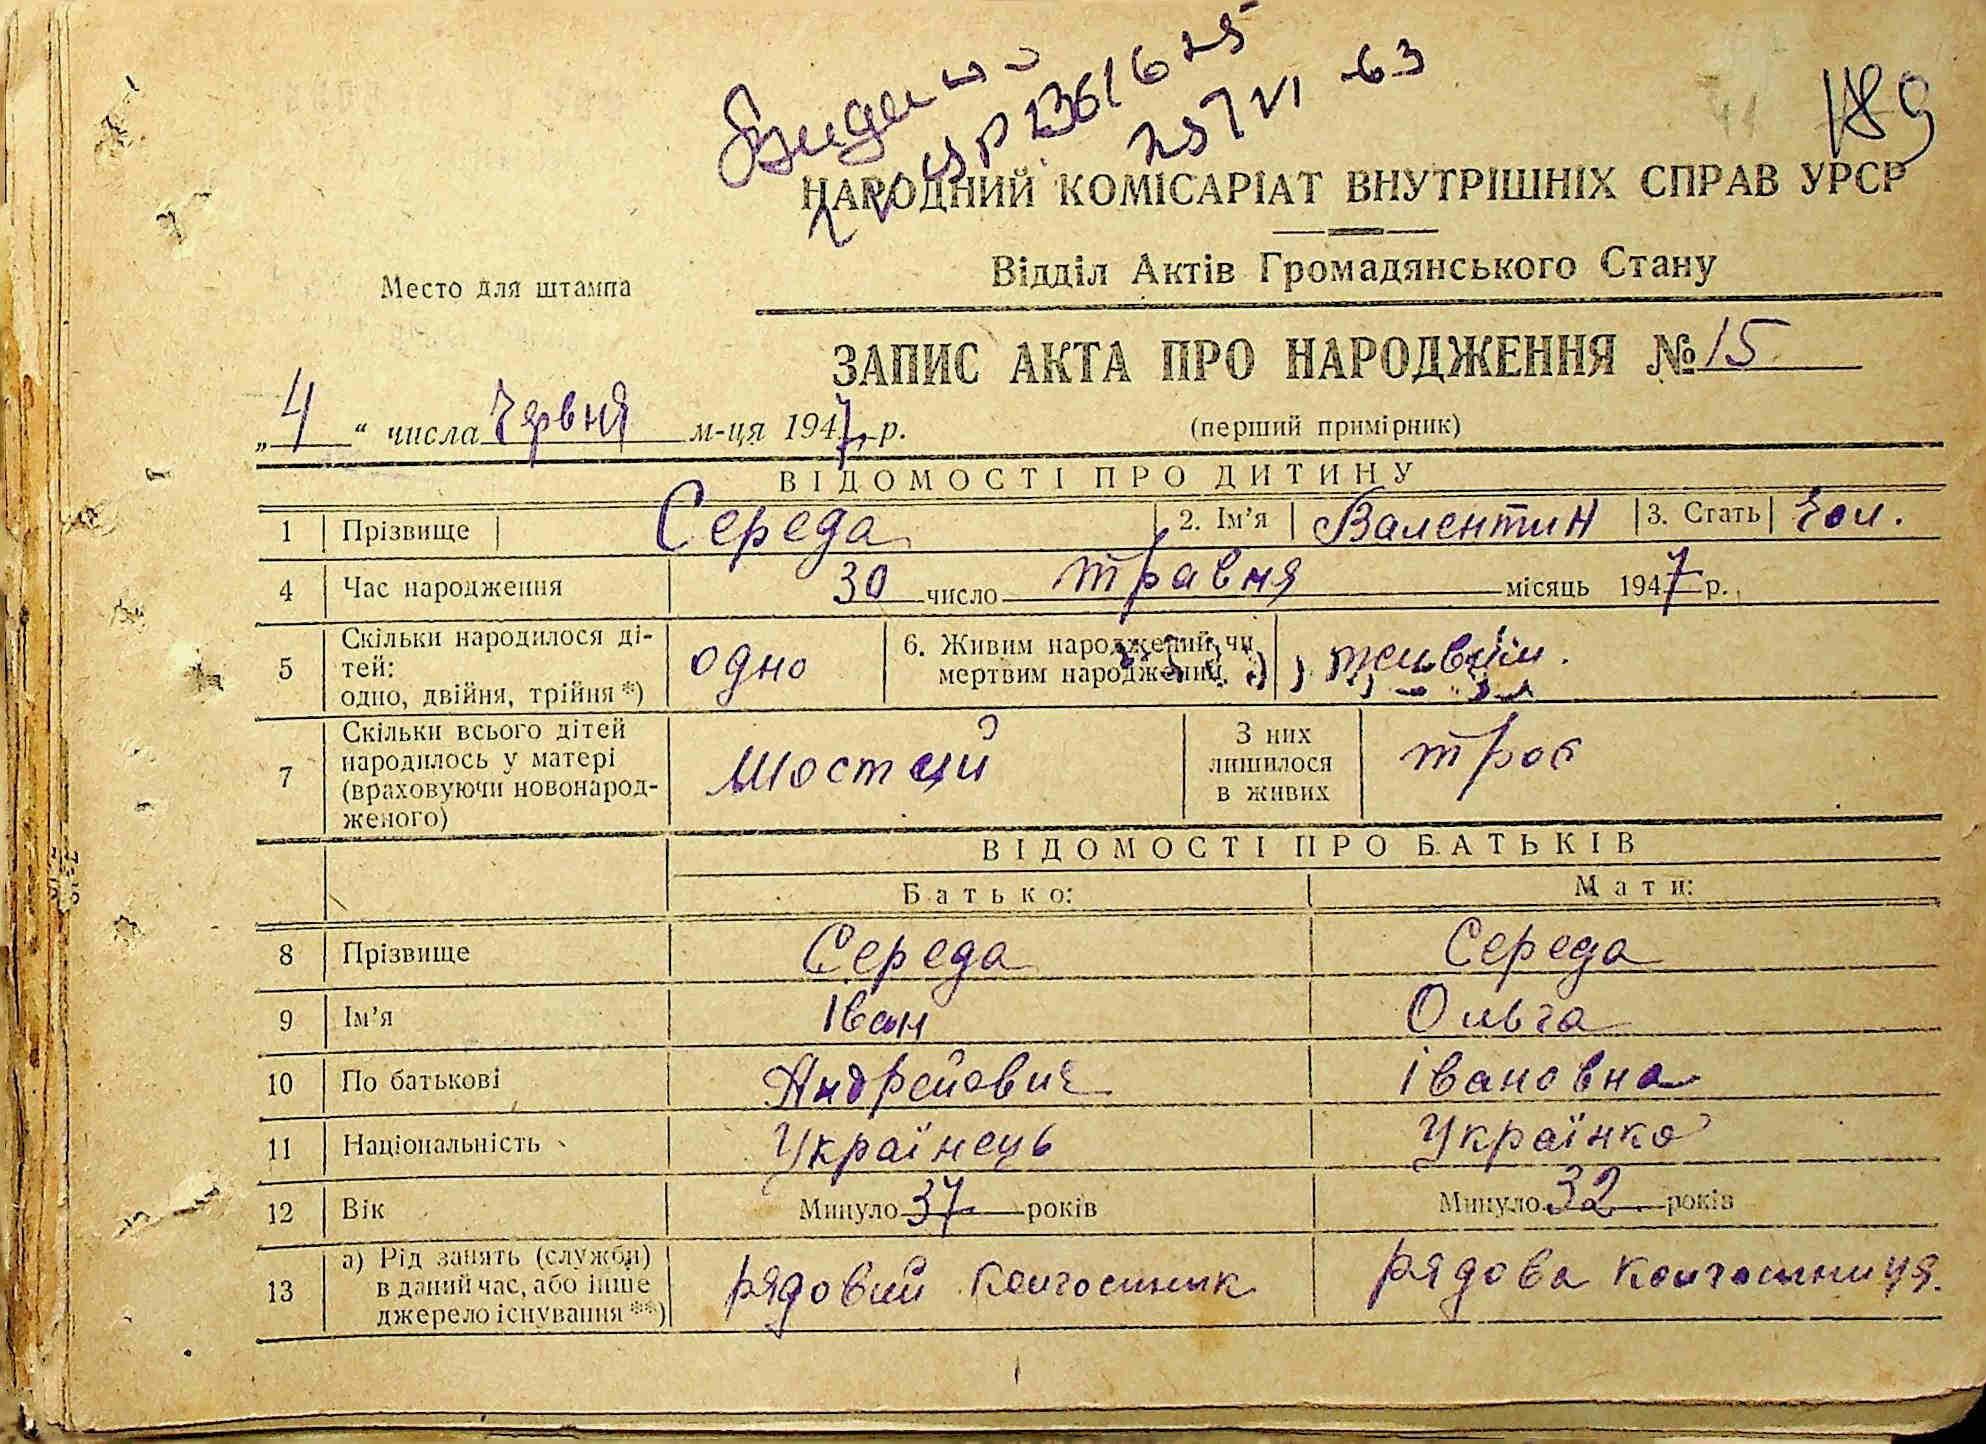 189
НАРОДНИЙ КОМІСАРІАТ ВНУТРІШНІХ СПРАВ УРСР
Відділ Актів Громадянського Стану
Место для штампа
ЗАПИС АКТА ПРО НАРОДЖЕННЯ № 15
„4“ числа Червня м-ця 1947 р.
(перший примірник)
ВІДОМОСТІ ПРО ДИТИНУ
1 Прізвище Середа 2. Ім’я Валентин 3. Стать Чол.
4 Час народження 30 число травня місяць 1947 р.
5 Скільки народилося ді-
тей:
одно, двійня, трійня *) одно 6. Живим народжений чи
мертвим народжений. живим.
7 Скільки всього дітей
народилось у матері
(враховуючи новонарод-
женого) шостий З них
лишилося
в живих троє
ВІДОМОСТІ ПРО БАТЬКІВ
Батько: Мати:
8 Прізвище Середа Середа
9 Ім’я Іван Ольга
10 По батькові Андрейович Івановна
11 Національність Українець Українка
12 Вік Минуло 37 років Минуло 32 років
13 а) Рід занять (служби)
в даний час, або інше
джерело існування **) рядовий колгоспник рядова колгоспниця.